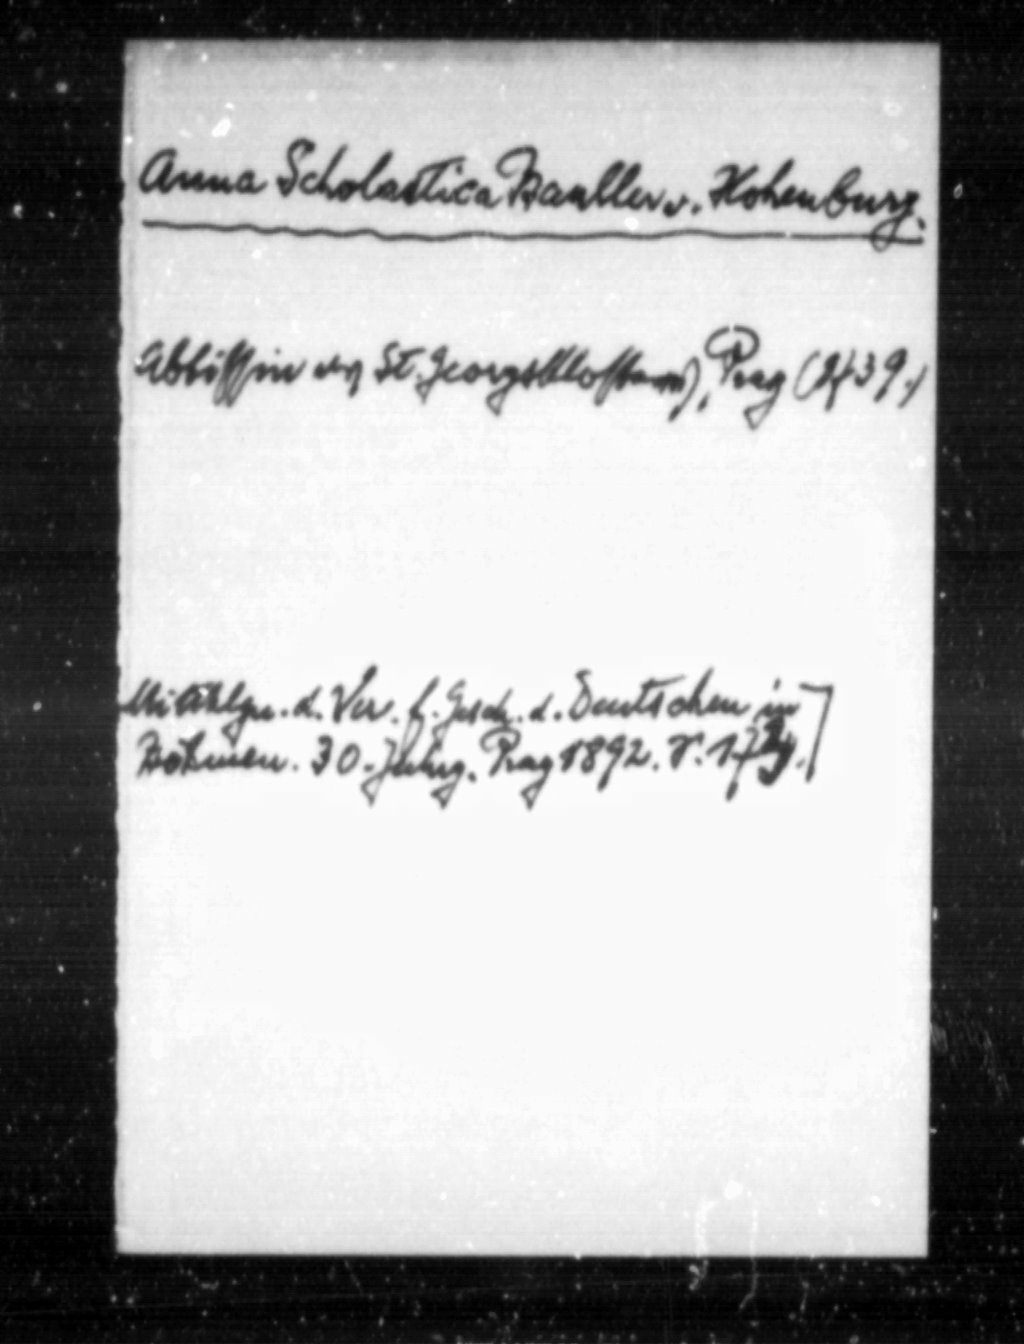 Anna Scholastica Bauller v. Hohenburg.
Äbtissin des St. Georgsklosters, Prag
Mitthlgn. d. Ver. f. Gesch. d. Deutschen in
Böhmen. 30. Jahrg. Prag 1892. S.